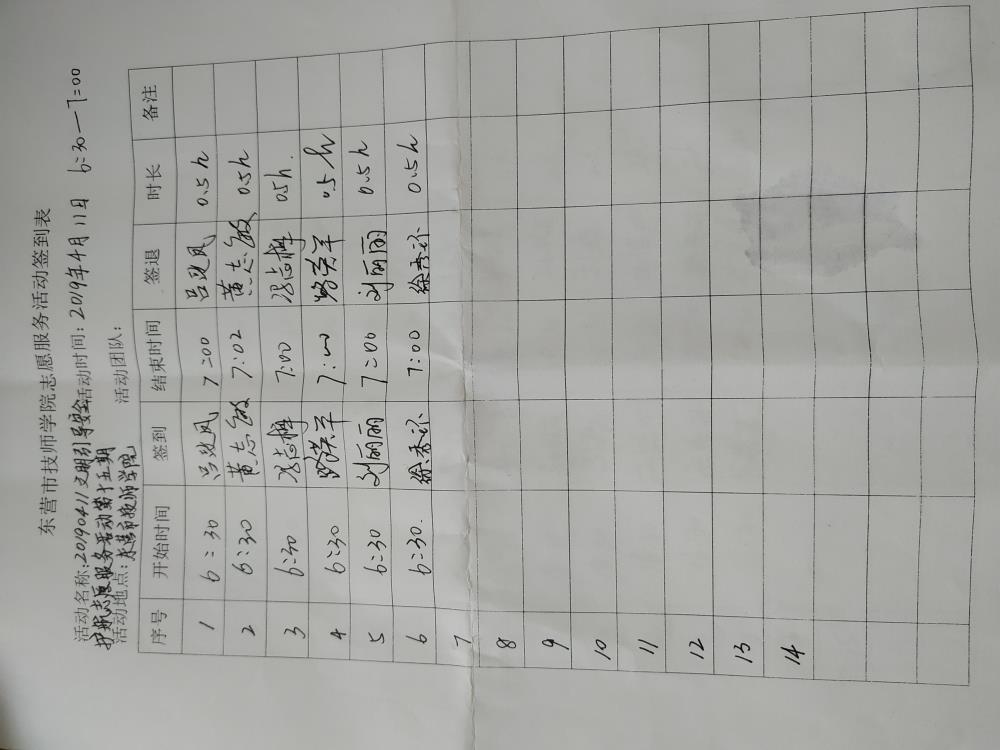 东营市技师学院志愿服务活动签到表
活动名称:20190411文明引导安全活动时间:2019年4月11日 6:30—7:00
护航志愿服务活动第十五期
活动地点:东营市技师学院 活动团队:
序号 开始时间 签到 结束时间 签退 时长 备注
1 6:30 吕 凤 7:00 吕 凤 0.5h
2 6:30 黄志敏 7:02 黄志敏 0.5h
3 6:30 志梅 7:00 志梅 0.5h.
4 6:30 路 7:00 路 0.5h
5 6:30 刘丽丽 7:00 刘丽丽 0.5h
6 6:30. 徐秀环 7:00 徐秀环 0.5h
7
8
9
10
11
12
13
14